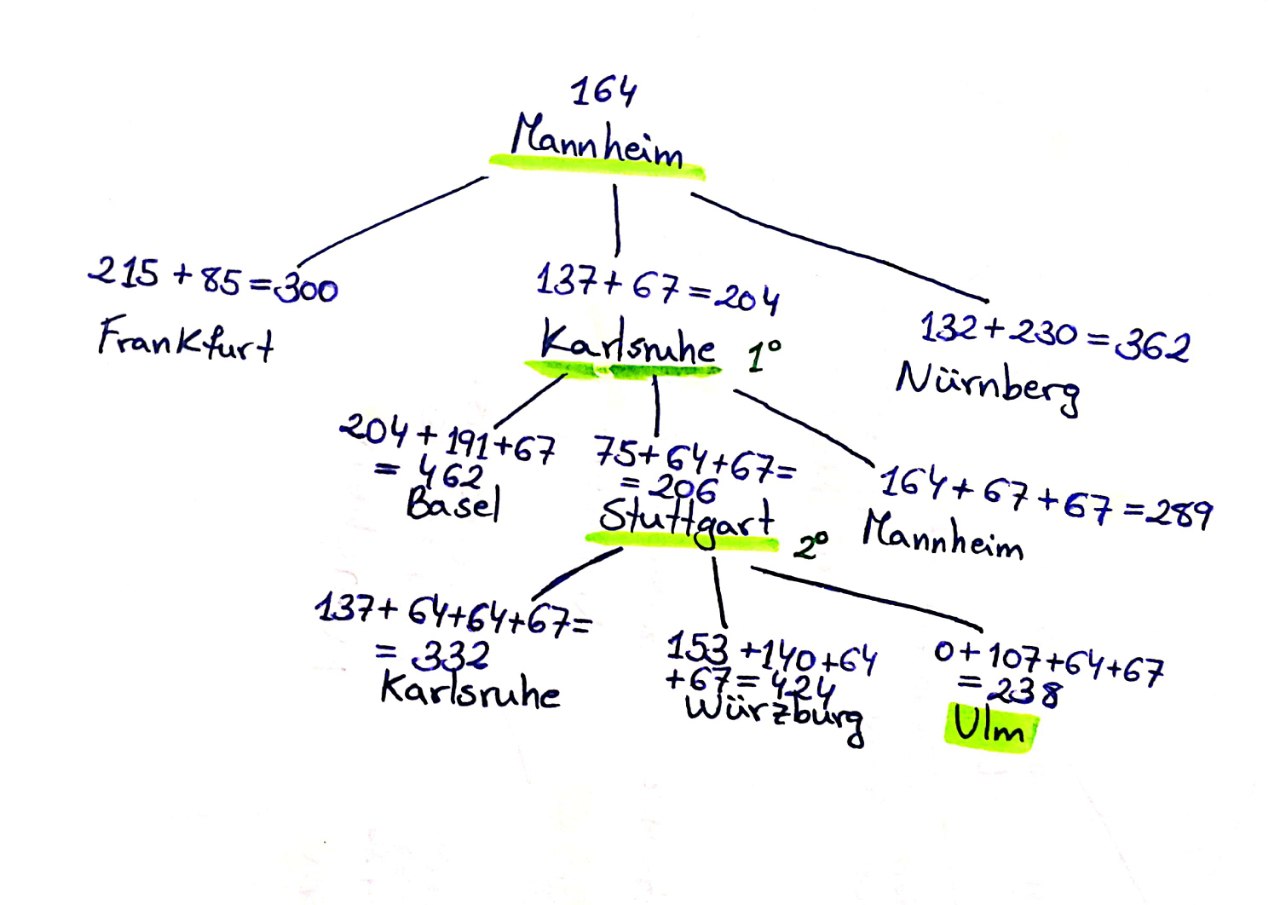 164
Mannheim
215 + 85 = 300
Frankfurt
137 + 67 = 204
Karlsruhe 1°
132 + 230 = 362
Nürnberg
204 + 191 + 67
= 462
Basel
75 + 64 + 67 =
= 206
Stuttgart 2°
164 + 67 + 67 = 289
Mannheim
137 + 64 + 64 + 67 =
= 332
Karlsruhe
153 + 140 + 64
+ 67 = 424
Würzburg
0 + 107 + 64 + 67
= 238
Ulm